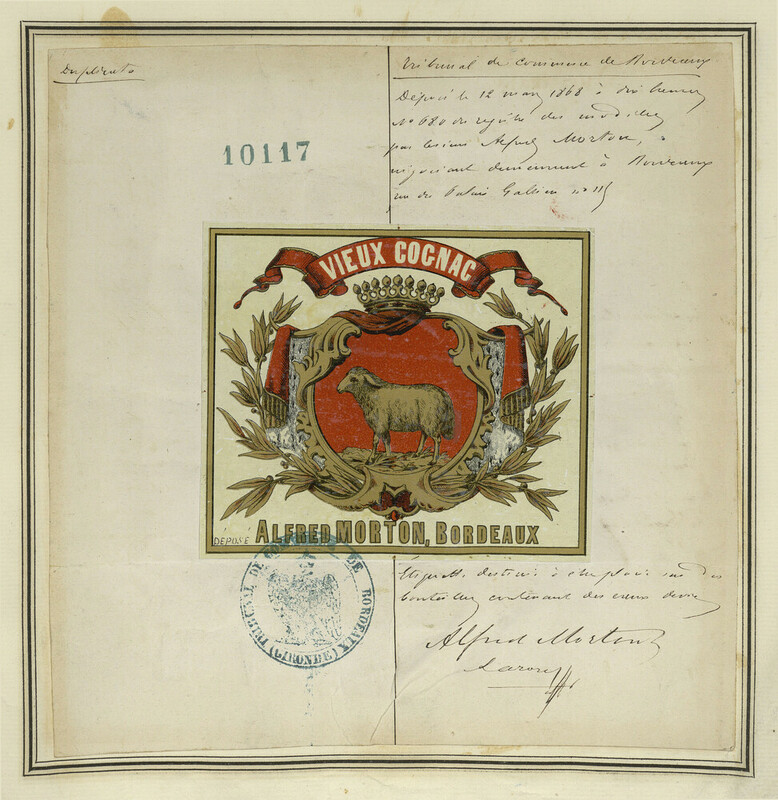 Duplicata
Tribunal de commerce de Bordeaux
Déposé le 12 mars 1868 à dix heures
No 680 du registre des modèles
par le sieur Alfred Morton,
négociant demeurant à Bordeaux
rue du Palais Gallien no 115
10117
VIEUX COGNAC
DÉPOSÉ
ALFRED MORTON, BORDEAUX
TRIBUNAL DE COMMERCE DE BORDEAUX (GIRONDE)
Etiquette destinée à être placée sur des
bouteilles contenant des eaux de vie
Alfred Morton